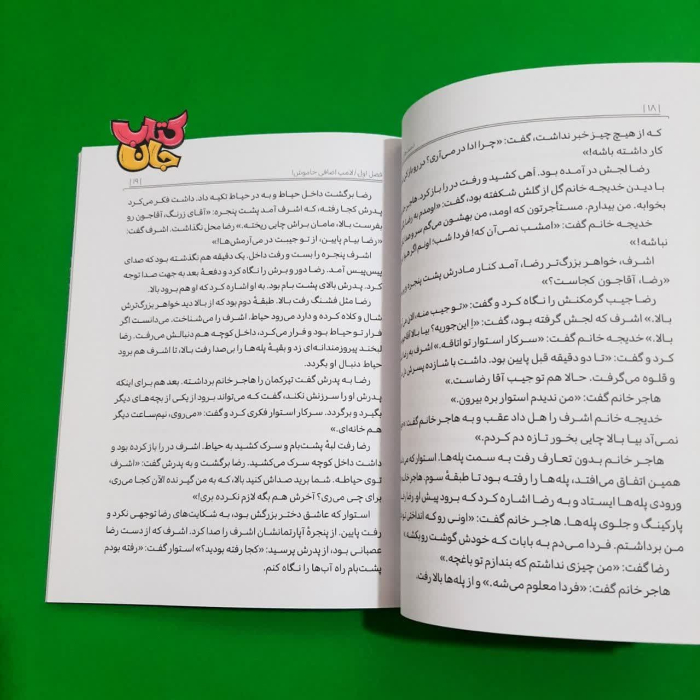 | ۱۸ |
که از هیچ چیز خبر نداشت، گفت: «چرا ادا در می‌آری؟ در رو باز کن
کار داشته باشه!»
رضا لجش در آمده بود. آهی کشید و رفت در را باز کرد. هاجر
با دیدن خدیجه خانم گل از گلش شکفته بود، گفت: «اومدم به رضا
بخوابه. من بیدارم. مستأجرتون که اومد، من بهشون می‌گم سر و صدا
خدیجه خانم گفت: «امشب نمی‌آن که! فردا شب! اونم اگر
نباشه!»
اشرف، خواهر بزرگ‌تر رضا، آمد کنار مادرش پشت پنجره
«رضا، آقاجون کجاست؟»
رضا جیب گرمکنش را نگاه کرد و گفت: «تو جیب منه، الان
بالا.» اشرف که لجش گرفته بود، گفت: «اِ این‌جوریه؟ بیا بالا
بالا.» خدیجه خانم گفت: «سرکار استوار تو اتاقه.» اشرف به رضا
کرد و گفت: «تا دو دقیقه قبل پایین بود. داشت با شازده پسرش
و قلوه می‌گرفت. حالا هم تو جیب آقا رضاست.»
هاجر خانم گفت: «من ندیدم استوار بره بیرون.»
خدیجه خانم اشرف را هل داد عقب و به هاجر خانم گفت:
نمی‌آد بیا بالا چایی بخور تازه دم کردم.»
هاجر خانم بدون تعارف رفت به سمت پله‌ها. استوار که
همین اتفاق می‌افتد، پله‌ها را رفته بود تا طبقهٔ سوم. هاجر
ورودی پله‌ها ایستاد و به رضا اشاره کرد که برود پیش او. رضا
پارکینگ و جلوی پله‌ها. هاجر خانم گفت: «اونی رو که انداختی
من برداشتم. فردا می‌دم به بابات که خودش گوشت رو بکشه.»
رضا گفت: «من چیزی نداشتم که بندازم تو باغچه.»
هاجر خانم گفت: «فردا معلوم می‌شه.» و از پله‌ها بالا رفت.
کتاب
جان
فصل اول / لامپ اضافی خاموش!
| ۱۹ |
رضا برگشت داخل حیاط و به در حیاط تکیه داد. داشت فکر می‌کرد
پدرش کجا رفته، که اشرف آمد پشت پنجره: «آقای زرنگ، آقاجون رو
بفرست بالا، مامان براش چایی ریخته.» رضا محل نگذاشت. اشرف گفت:
«رضا بیام پایین، از تو جیبت در می‌آرمش‌ها!»
اشرف پنجره را بست و رفت داخل. یک دقیقه هم نگذشته بود که صدای
پیس‌پیس آمد. رضا دور و برش را نگاه کرد و دفعهٔ بعد به جهت صدا توجه
کرد. پدرش بالای پشت بام بود. به او اشاره کرد که او هم برود بالا.
رضا مثل فشنگ رفت بالا. طبقهٔ دوم بود که از بالا دید خواهر بزرگ‌ترش
شال و کلاه کرده و دارد می‌رود حیاط. اشرف را می‌شناخت. می‌دانست اگر
فرار تو حیاط بود و فرار می‌کرد، داخل کوچه هم دنبالش می‌رفت. رضا
لبخند پیروزمندانه‌ای زد و بقیهٔ پله‌ها را بی‌صدا رفت بالا، تا اشرف هم برود
حیاط دنبال او بگردد.
رضا به پدرش گفت تیرکمان را هاجر خانم برداشته. بعد هم برای اینکه
پدرش او را سرزنش نکند، گفت که می‌تواند برود از یکی از بچه‌های دیگر
بگیرد و برگردد. سرکار استوار فکری کرد و گفت: «می‌روی، نیم‌ساعت دیگر
هم خانه‌ای.»
رضا رفت لبهٔ پشت‌بام و سرک کشید به حیاط. اشرف در را باز کرده بود و
داشت داخل کوچه سرک می‌کشید. رضا برگشت و به پدرش گفت: «اشرف
توی حیاطه. شما برید صداش کنید بالا، که به من گیر نده الآن کجا می‌ری،
برای چی می‌ری؟ آخرش هم بگه لازم نکرده بری!»
استوار که عاشق دختر بزرگش بود، به شکایت‌های رضا توجهی نکرد و
رفت پایین. از پنجرهٔ آپارتمانشان اشرف را صدا کرد. اشرف که از دست رضا
عصبانی بود، از پدرش پرسید: «کجا رفته بودید؟» استوار گفت: «رفته بودم
پشت‌بام راه آب‌ها را نگاه کنم.